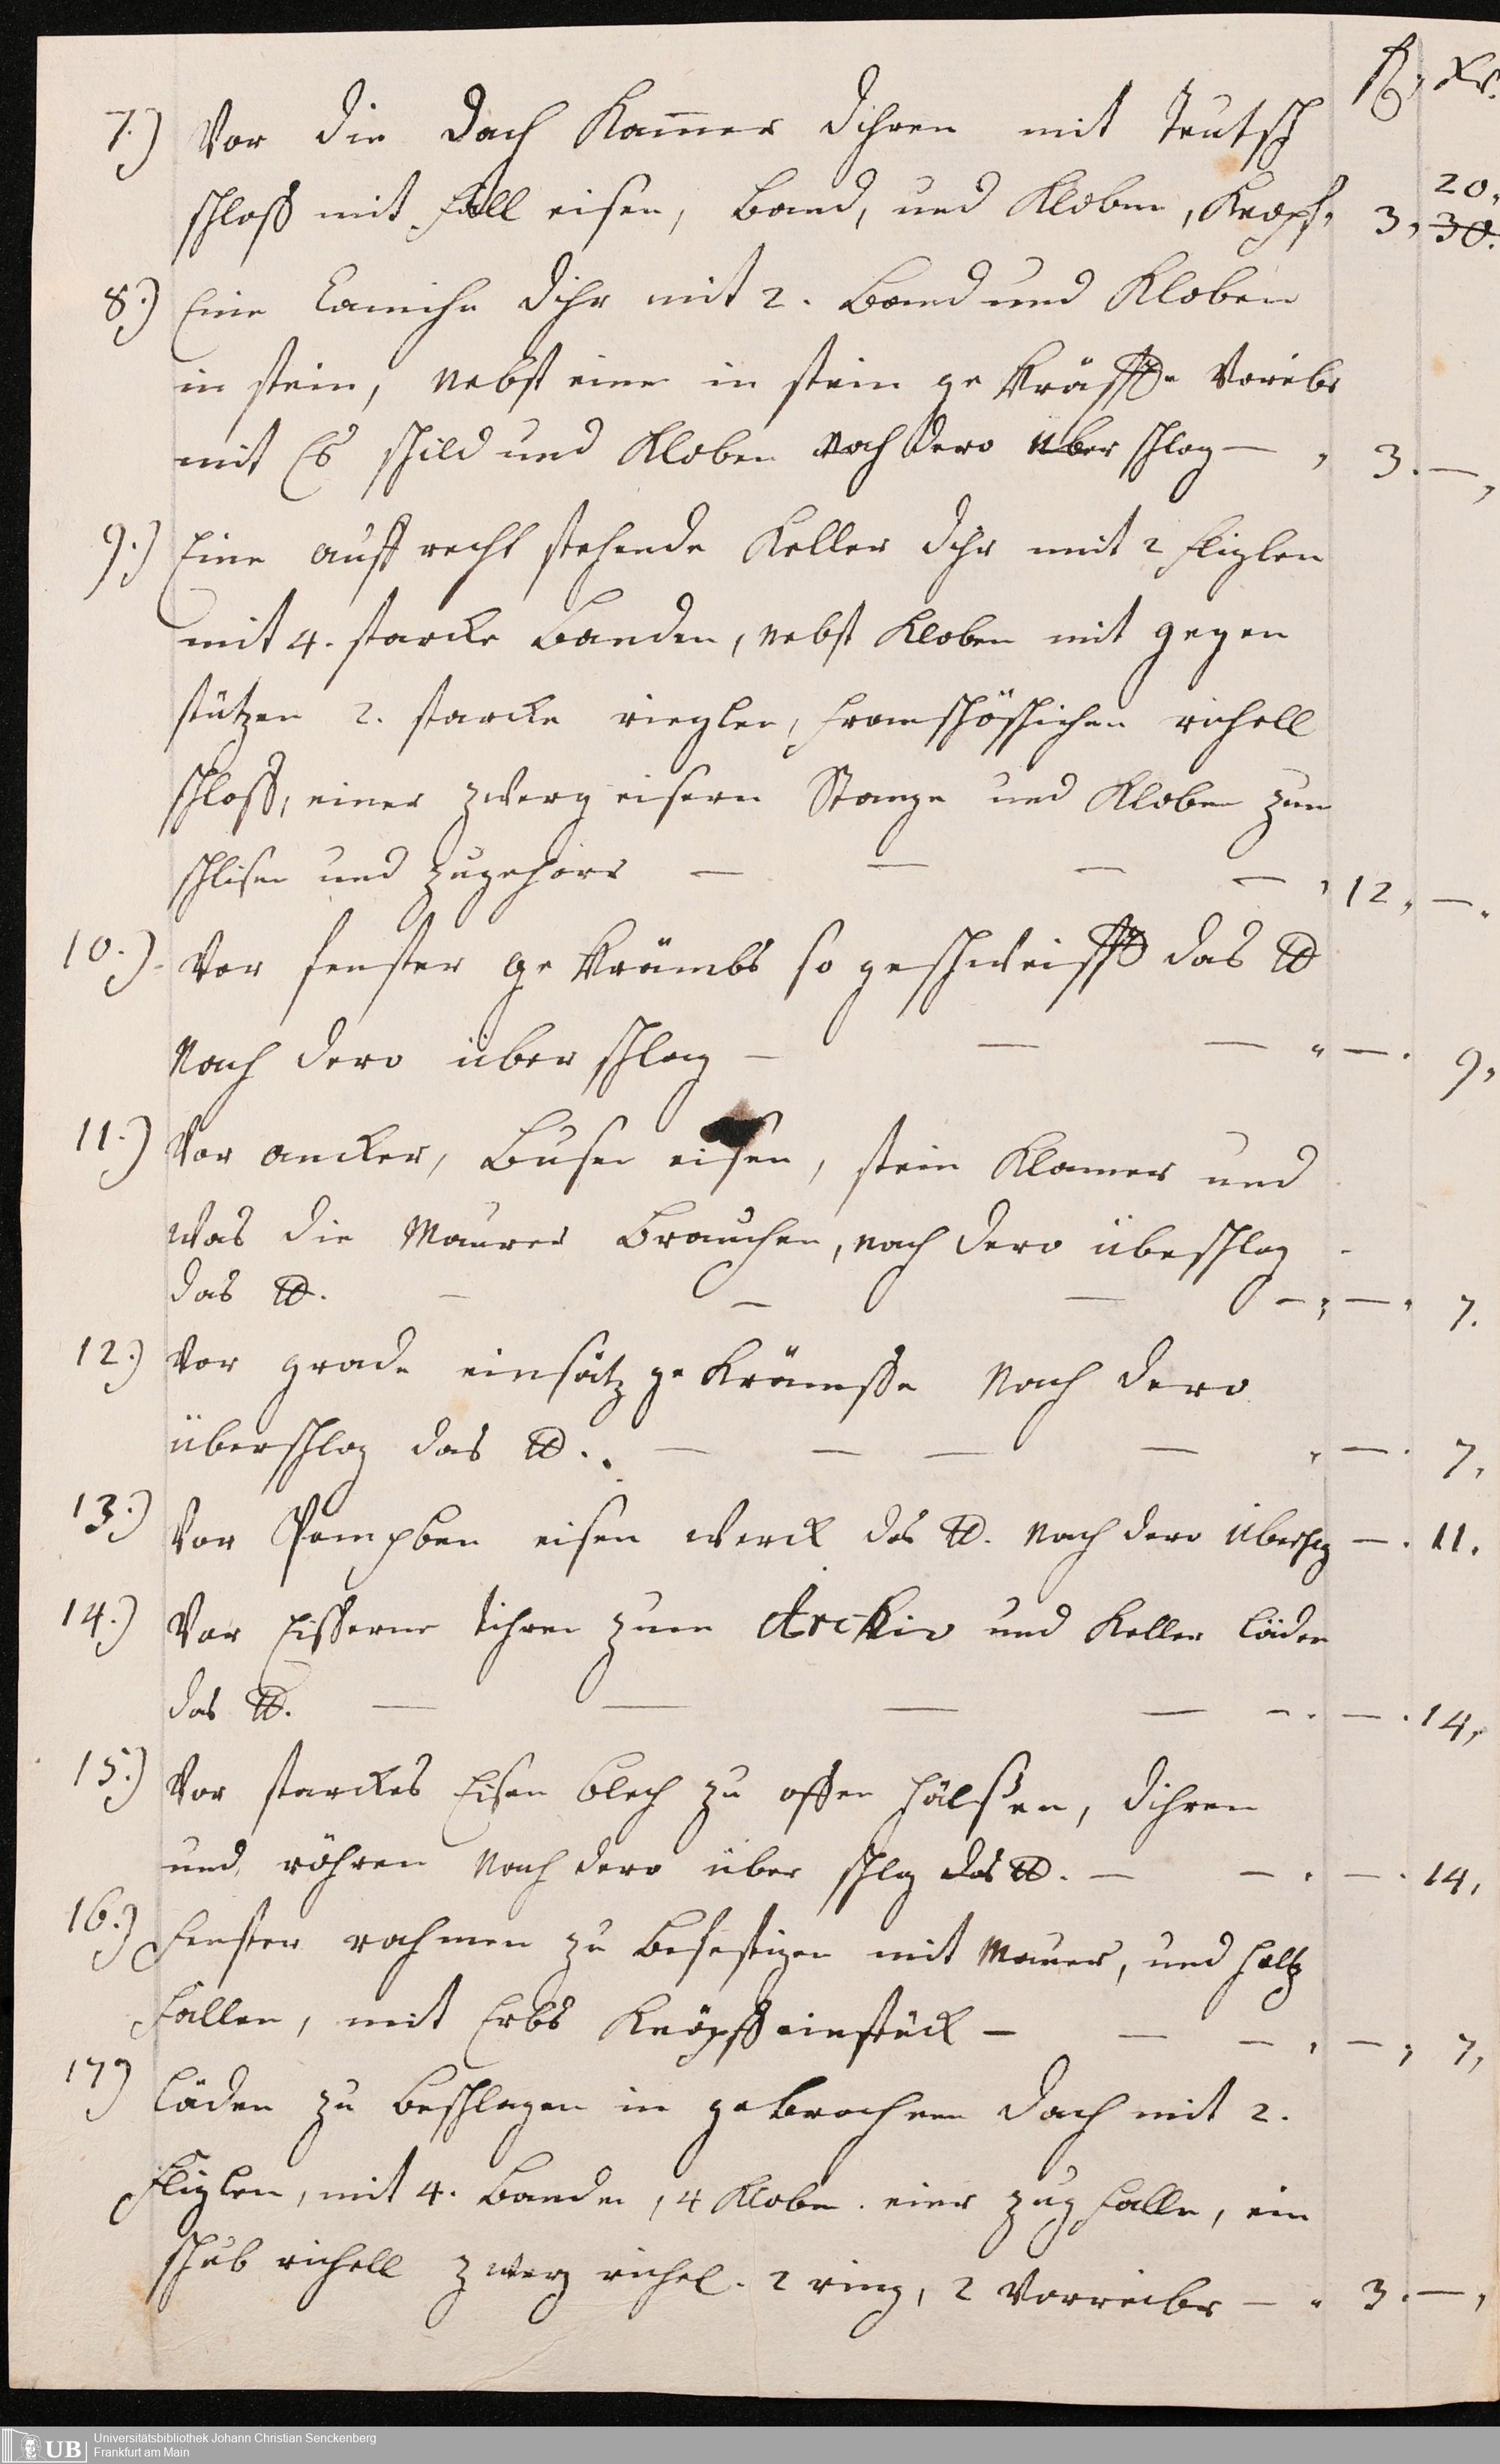 fl. Xr.
7.) Vor die Dach Kammer dihren mit Teutsch
schloß mit fall eisen, Band, und Kloben, Knopf, 3, 20.
30.
8.) Eine Camihn dihr mit 2. Band und Kloben
in stein, nebst einer in stein ge Kröpffte Voreibr
mit Es schild und Kloben nach dero über schlag — , 3. —,
9.) Eine auff recht stehende Keller dihr mit 2 fliglen
mit 4. starcke Banden, nebst Kloben mit gegen
stützen 2. starcke rieglen, franschösischen richell
schloß, einer zwerg eisern Stange und Kloben zum
schlisen und zugehörr — — — — , 12, —.
10.) Vor fenster ge Krämbs so geschweifft das ℔
Nach dero über schlag — — — " — . 9,
11.) Vor ancker, Busen eisen, stein Klamer und
was die Maurer Brauchen, nach dero übeschlag
das ℔. — — — — , — , 7.
12.) Vor grade einsätz ge Krämsse Nach dero
überschlag das ℔. . — — — — , — . 7,
13.) Vor Pompben eisen werck das ℔. nach dero übersch — . 11.
14.) Vor Eisserne tihren zum Archiv und Keller läden
das ℔. — — — — — . — . 14,
15.) Vor starckes Eisen blech zu offen hälßen, dihren
und röhren nach dero über schlg das ℔. — — . — . 14,
16.) Fenster rahmen zu befestigen mit Mauer, und holtz
fallen, mit Erbs Knöpff ein stück — — — , — , 7,
17) Läden zu beschlagen in gebrochnen dach mit 2.
fliglen, mit 4. Banden, 4 Kloben. einer zug falle, ein
schub richell zwerg richel. 2 ring, 2 Vorreiber — " 3. —,
UB Universitätsbibliothek Johann Christian Senckenberg
Frankfurt am Main